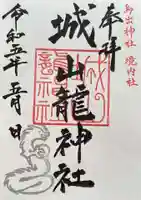 鳥出神社 境内社
奉拝
城山龍神社
令和五年五月 日